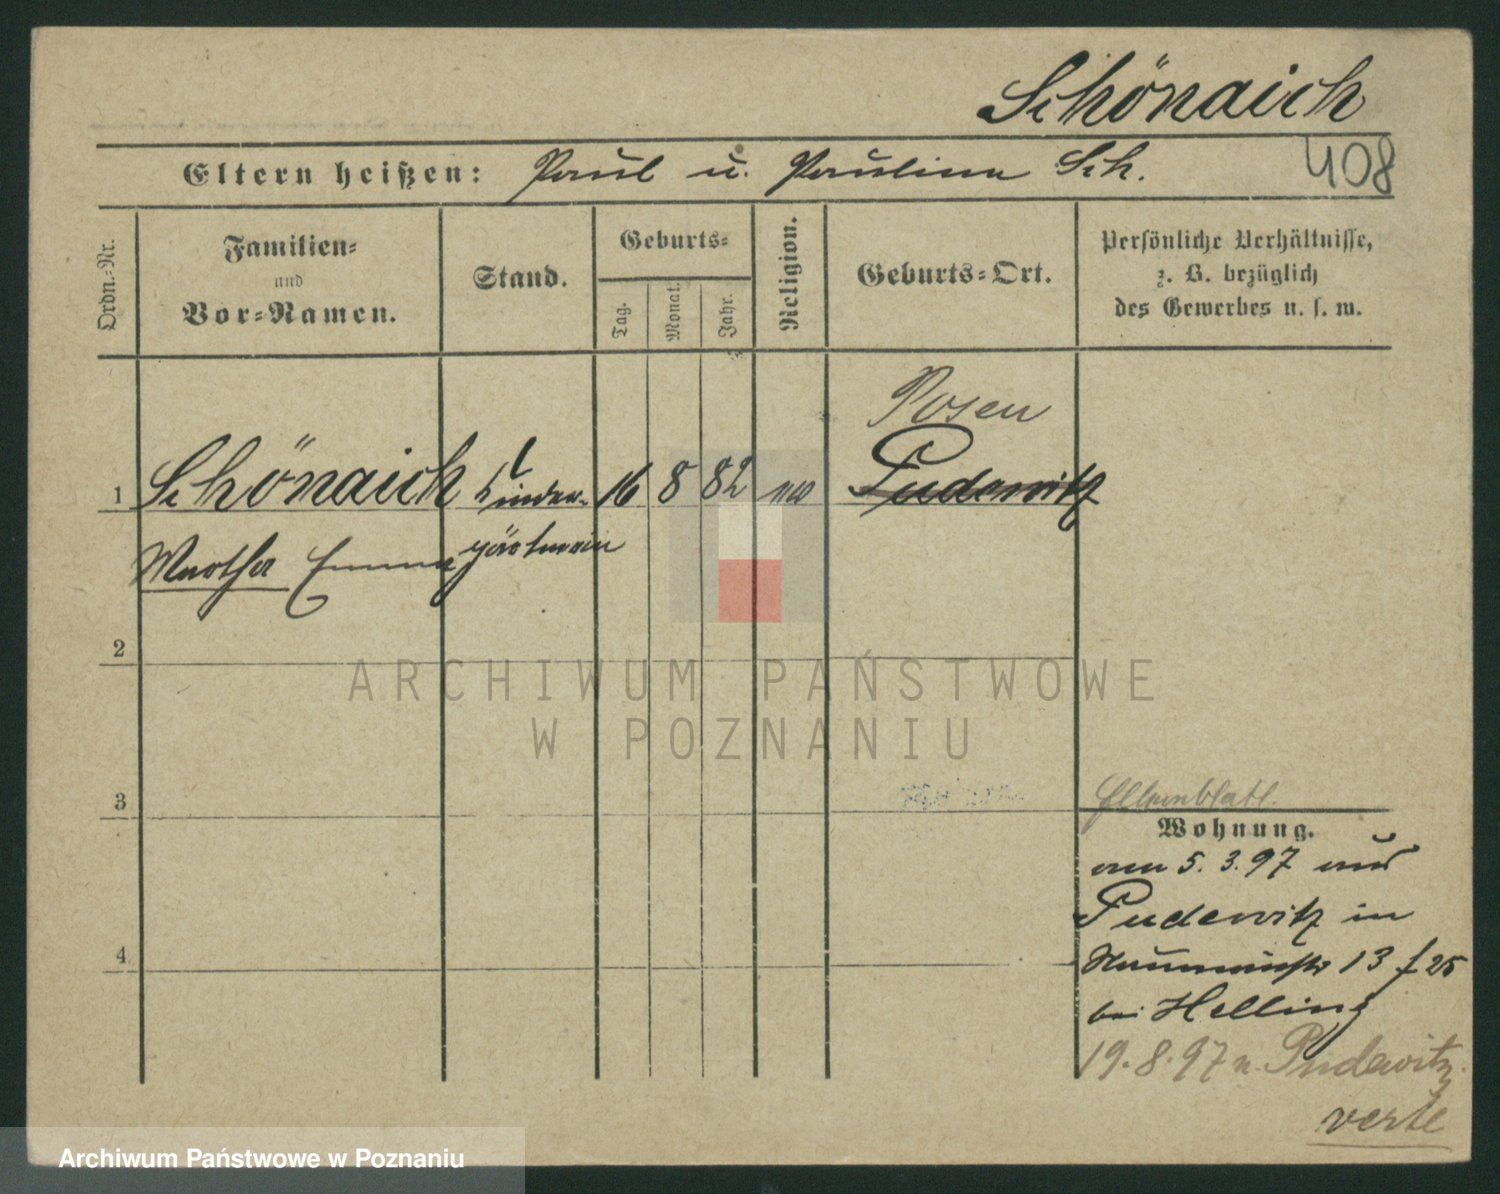 Schönaich
Eltern heißen: Paul u. Paulina Sch.
408
Ordn.-Nr.
Familien-
und
Vor-Namen.
Stand.
Geburts-
Tag.
Monat.
Jahr.
Religion.
Geburts-Ort.
Persönliche Verhältnisse,
z. B. bezüglich
des Gewerbes u. s. w.
Posen
1 Schönaich Kinder- 16 8 82 Pudewitz
Martha Emma gärtnerin
2
3
4
Elternblatt.
Wohnung.
am 5. 3. 97 aus
Pudewitz in
13 f 25
bei Helling
19. 8. 97 n. Pudewitz.
verte
ARCHIWUM PAŃSTWOWE
W POZNANIU
Archiwum Państwowe w Poznaniu